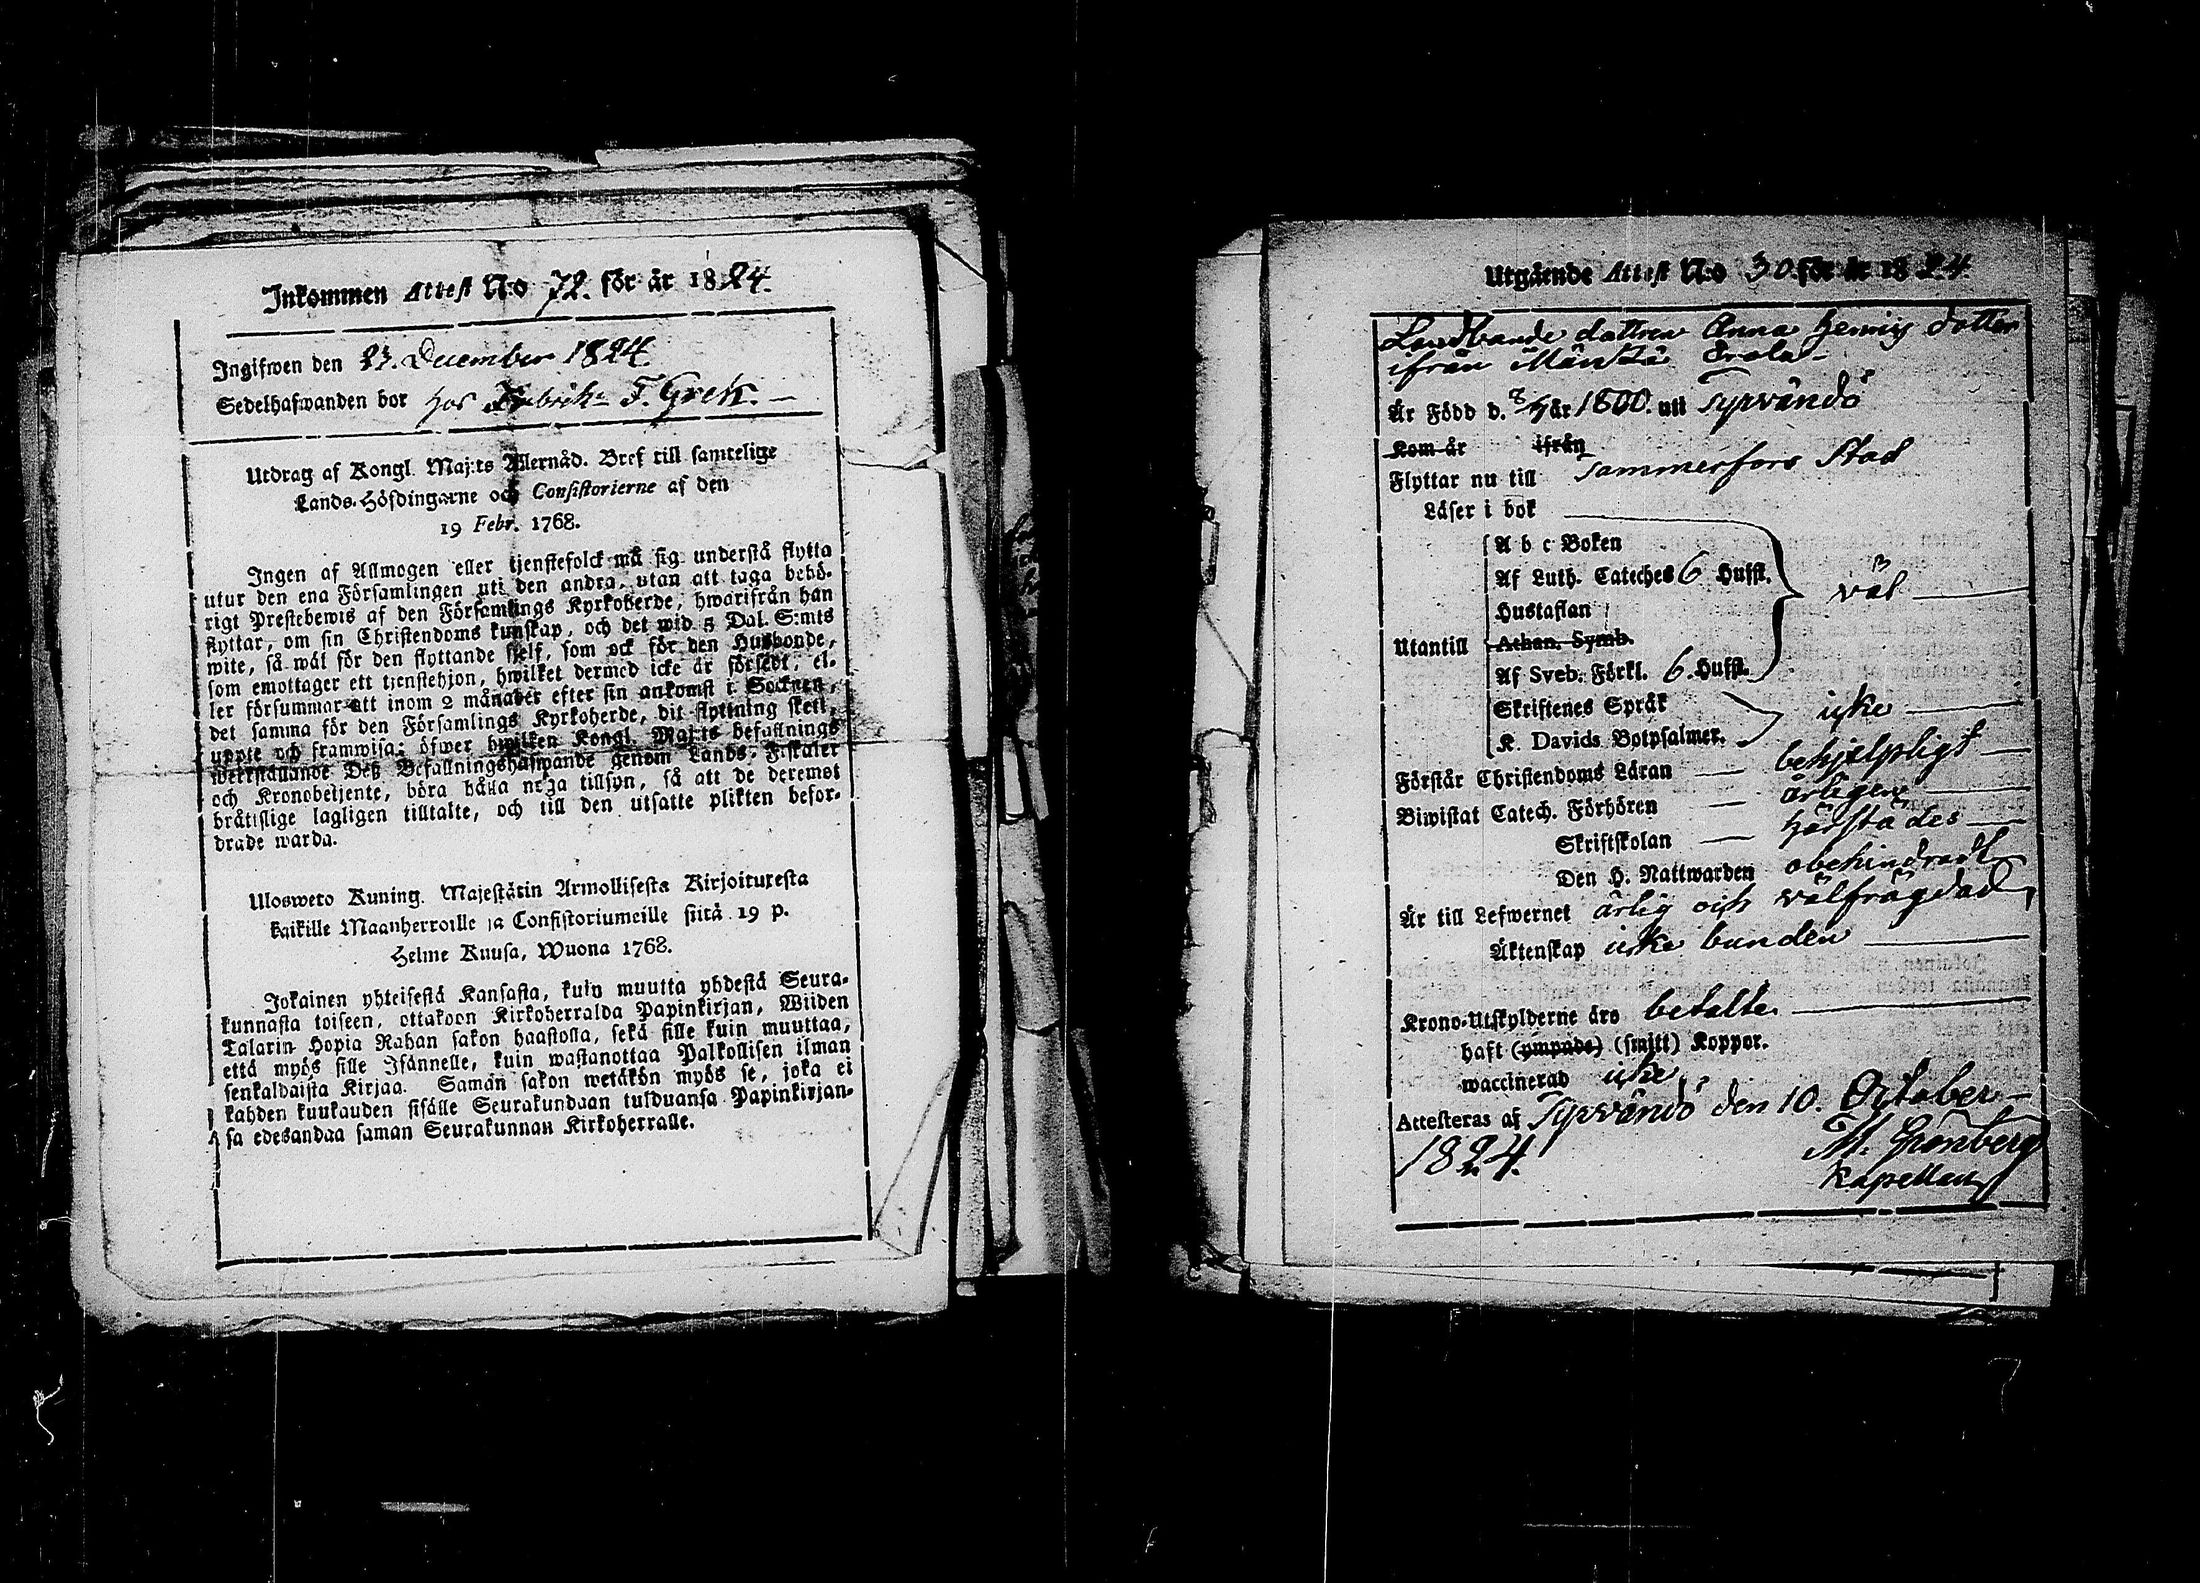 Inkommen Attest N:o 72. för år 1824.
Ingifwen den 23. December 1824
Sedelhafwanden bor hos Fabrik. F. Grek. —
Utdrag af Kongl. Maj:ts Allernåd. Bref till samtelige
Lands-Höfdingarne och Consistorierne af den
19 Febr. 1768.
Ingen af Allmogen eller tjenstefolck må sig understå flytta
utur den ena Församlingen uti den andra, utan att taga behö-
rigt Prestebewis af den Församlings Kyrkoherde, hwarifrån han
flyttar, om sin Christendoms kunskap, och det wid 5 Dal. S:mts
wite, så wäl för den flyttande sjelf, som ock för den Husbonde,
som emottager ett tjenstehjon, hwilket dermed icke är försedt, el-
ler försummar att inom 2 månader efter sin ankomst i Socknen,
det samma för den Församlings Kyrkoherde, dit flyttning skett,
uppte och framwisa; öfwer hwilken Kongl. Maj:ts befallnings
werkställande Deß Befallningshafwande genom Lands-Fiskaler
och Kronobetjente, böra hålla noga tillsyn, så att de deremot
bråttslige lagligen tilltalte, och till den utsatte plikten befor-
drade warda.
Ulosweto Kuning. Majestätin Armollisesta Kirjoituxesta
kaikille Maanherroille ja Consistoriumeille siitä 19 p.
Helme Kuusa, Wuona 1768.
Jokainen yhteisestä Kansasta, kuin muutta yhdestä Seura-
kunnasta toiseen, ottakoon Kirkoherralda Papinkirjan, Wiiden
Talarin Hopia Rahan sakon haastolla, sekä sille kuin muuttaa,
että myös sille Isännelle, kuin wastanottaa Palkollisen ilman
senkaldaista Kirjaa. Saman sakon wetäkön myös se, joka ei
kahden kuukauden sisälle Seurakundaan tulduansa Papinkirjan-
sa edesandaa saman Seurakunnan Kirkoherralle.
Utgående Attest N:o 30 för år 1824
Landbonde dottren Anna Hemigs dotter
ifrån Mäntzä Erola —
Är Född d. 8/4 år 1800. uti Tyrvändö
Kom år ifrån
Flyttar nu till Tammerfors Stad
Läser i bok
A b c Boken
Af Luth. Cateches 6 Hufst.
Hustaflan
wäl
Utantill
Athan. Symb.
Af Sveb. Förkl. 6. Hufst.
Skriftenes Språk
icke
K. Davids Botpsalmer.
Förstår Christendoms Läran — behjelpligt —
Biwistat Catech. Förhören — årligen —
Skriftskolan — härstädes —
Den H. Nattwarden obehindradt
Är till Lefwernet ärlig och wälfrägdad,
Äktenskap icke bunden —
Krono-Utskylderne äro betalte. —
haft (ympade) (smitt) Koppor.
waccinerad icke
Attesteras af Tyrvändö den 10. October —
1824.
M. Grönberg
Kapellan